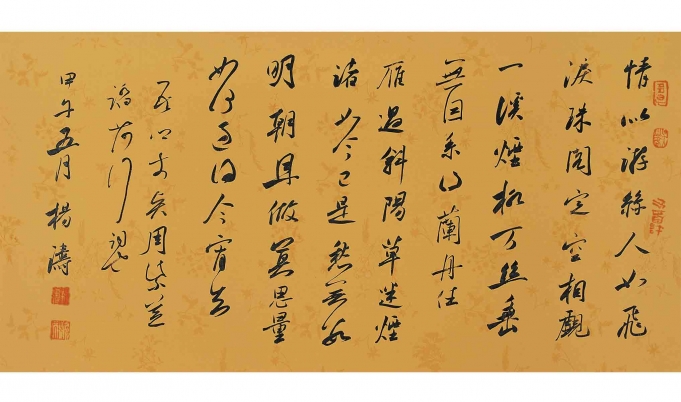 情似游絲人如飛
淚珠閣定空相覷
一溪煙柳万絲垂
無因系得蘭舟住
雁過斜陽草迷煙
渚如今已是愁無數
明朝且做莫思量
如何過得今宵去
周紫芝
踏莎行
甲午五月楊濤